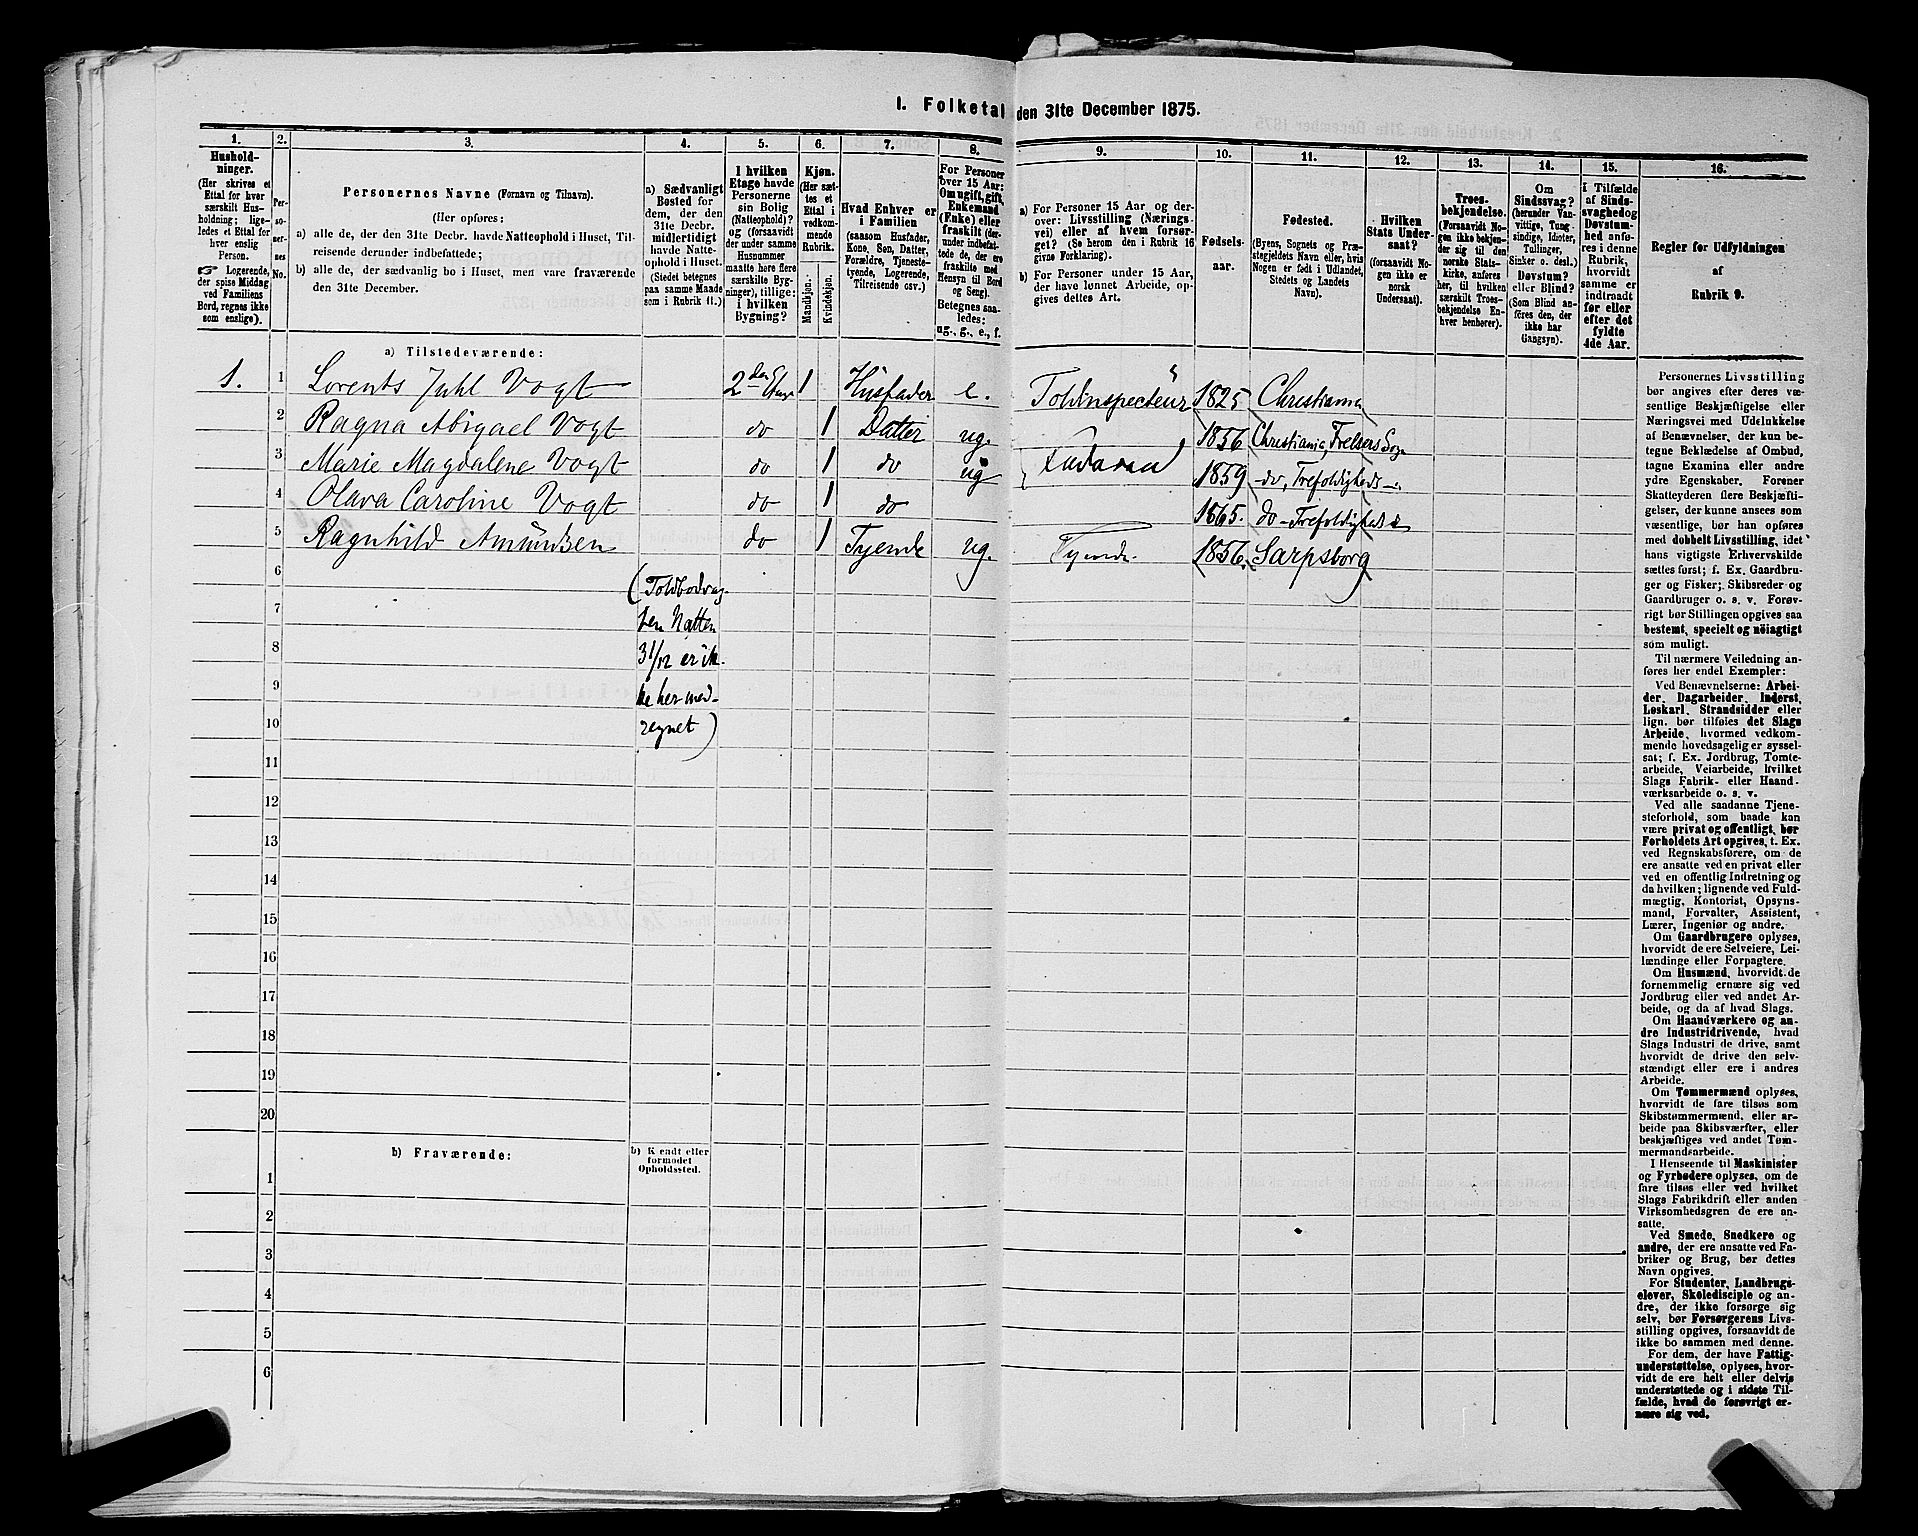 I. Folketal den 31te December 1875.
1. 2. 3. 4. 5. 6. 7. 8. 9. 10. 11. 12. 13. 14. 15. 16.
Hushold-
ninger.
(Her skrives et
Ettal for hver
særskilt Hus-
holdning; lige-
ledes et Ettal for
hver enslig
Person.
☞ Logerende,
der spise Middag
ved Familiens
Bord, regnes ikke
som enslige).
Per-
so-
ner-
nes
No.
Personernes Navne (Fornavn og Tilnavn).
(Her opføres:
a) alle de, der den 31te Decbr. havde Natteophold i Huset, Til-
reisende derunder indbefattede;
b) alle de, der sædvanlig bo i Huset, men vare fraværende
den 31te December.
a) Sædvanligt
Bosted for
dem, der den
31te Decbr.
midlertidigt
havde Natte-
ophold i Huset.
(Stedet betegnes
paa samme Maade
som i Rubrik 11.)
I hvilken
Etage havde
Personerne
sin Bolig
(Natteophold)?
og (forsaavidt
der under samme
Husnummer
maatte høre flere
særskilte Byg-
ninger), tillige:
i hvilken
Bygning?
Kjøn.
(Her sæt-
tes et
Ettal i
vedkom-
mende
Rubrik.
Mandkjøn.
Kvindekjøn.
Hvad Enhver er
i Familien
(saasom Husfader,
Kone, Søn, Datter,
Forældre, Tjeneste-
tyende, Logerende,
Tilreisende osv.).
For Personer
over 15 Aar:
Om ugift, gift,
Enkemand
(Enke) eller
fraskilt (der-
under indbefat-
tede de, der ere
fraskilte med
Hensyn til Bord
og Seng).
Betegnes saa-
ledes:
ug., g., e., f.
a) For Personer 15 Aar og der-
over: Livsstilling (Nærings-
vei) eller af hvem forsør-
get? (Se herom den i Rubrik 16
givne Forklaring).
b) For Personer under 15 Aar,
der have lønnet Arbeide, op-
gives dettes Art.
Fødsels-
aar.
Fødested.
(Byens, Sognets og Præ-
stegjeldets Navn, eller, hvis
Nogen er født i Udlandet,
Stedets og Landets
Navn).
Hvilken
Stats Under-
saat?
(forsaavidt No-
gen ikke er
norsk
Undersaat).
Troes-
bekjendelse.
(Forsaavidt No-
gen ikke bekjen-
der sig til den
norske Stats-
kirke, anføres
her, til hvilken
særskilt Troes-
bekjendelse En-
hver henhører).
Om
Sindssvag?
(herunder Van-
vittige, Tung-
sindige, Idioter,
Tullinger,
Sinker o. desl.)
Døvstum?
eller Blind?
(Som Blind an-
føres den, der
ikke har
Gangsyn).
I Tilfælde
af Sinds-
svaghed og
Døvstum-
hed anfø-
res i denne
Rubrik,
hvorvidt
samme er
indtraadt
før eller
efter det
fyldte
4de Aar.
Regler for Udfyldningen
af
Rubrik 9.
a) Tilstedeværende:
1. 1 Lorents Juhl Vogt 2den Etage 1 Husfader e. Toldinspecteur 1825 Christiania
2 Ragna Abigael Vogt do 1 Datter ug. 1856 Christiania, Frelsers Sogn
3 Marie Magdalene Vogt do 1 do ug 1859 do, Trefoldigheds
4 Olava Caroline Vogt do 1 do 1865. do - Trefoldigheds
5 Ragnhild Amundsen do 1 Tyende ug. Tyende. 1856. Sarpsborg
6
7
8
9
10
(Toldbodvag-
ten Natten
31/12 er ik-
ke her med-
regnet)
11
12
13
14
15
16
17
18
19
20
b) Fraværende:
b) Kjendt eller
formodet
Opholdssted.
1
2
3
4
5
6
Personernes Livsstilling
bør angives efter deres væ-
sentlige Beskjæftigelse eller
Næringsvei med Udelukkelse
af Benævnelser, der kun be-
tegne Beklædelse af Ombud,
tagne Examina eller andre
ydre Egenskaber. Forener
Skatteyderen flere Beskjæfti-
gelser, der kunne ansees som
væsentlige, bør han opføres
med dobbelt Livsstilling, idet
hans vigtigste Erhvervskilde
sættes først; f. Ex. Gaardbru-
ger og Fisker; Skibsreder og
Gaardbruger o. s. v. Forøv-
rigt bør Stillingen opgives saa
bestemt, specielt og nøiagtigt
som muligt.
Til nærmere Veiledning an-
føres her endel Exempler:
Ved Benævnelserne: Arbei-
der, Dagarbeider, Inderst,
Løskarl, Strandsidder eller
lign. bør tilføies det Slags
Arbeide, hvormed vedkom-
mende hovedsagelig er syssel-
sat; f. Ex. Jordbrug, Tomte-
arbeide, Veiarbeide, hvilket
Slags Fabrik- eller Haand-
værksarbeide o. s. v.
Ved alle saadanne Tjene-
steforhold, som baade kan
være privat og offentligt, bør
Forholdets Art opgives, t. Ex.
ved Regnskabsførere, om de
ere ansatte ved en privat eller
ved en offentlig Indretning og
da hvilken; lignende ved Fuld-
mægtig, Kontorist, Opsyns-
mand, Forvalter, Assistent,
Lærer, Ingeniør og andre.
Om Gaardbrugere oplyses,
hvorvidt de ere Selveiere, Lei-
lændinge eller Forpagtere.
Om Husmænd, hvorvidt de
fornemmelig ernære sig ved
Jordbrug eller ved andet Ar-
beide, og da af hvad Slags.
Om Haandværkere og an-
dre Industridrivende, hvad
Slags Industri de drive, samt
hvorvidt de drive den selv-
stændigt eller ere i andres
Arbeide.
Om Tømmermænd oplyses,
hvorvidt de fare tilsøs som
Skibstømmermænd, eller ar-
beide paa Skibsværfter, eller
beskjæftiges ved andet Tøm-
mermandsarbeide.
I Henseende til Maskinister
og Fyrbødere oplyses, om de
fare tilsøs eller ved hvilket
Slags Fabrikdrift eller anden
Virksomhedsgren de ere an-
satte.
Ved Smede, Snedkere og
andre, der ere ansatte ved Fa-
briker og Brug, bør dettes
Navn opgives.
For Studenter, Landbrugs-
elever, Skoledisciple og an-
dre, der ikke forsørge sig
selv, bør Forsørgerens Livs-
stilling opgives, forsaavidt de
ikke bo sammen med denne.
For dem, der have Fattig-
understøttelse, oplyses, hvor-
vidt de ere helt eller delvis
understøttede og i sidste Til-
fælde, hvad de forøvrigt er-
nære sig ved.